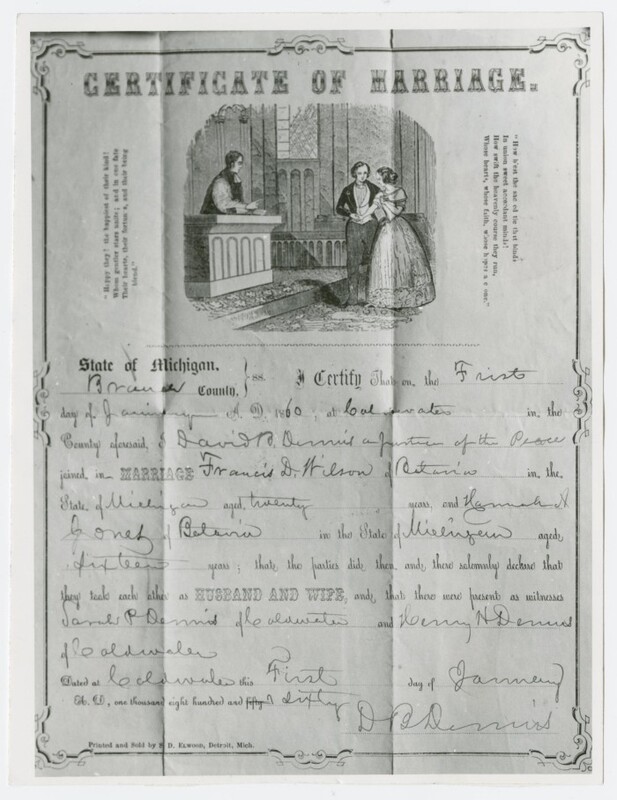 CERTIFICATE OF MARRIAGE.
"Happy they! the happiest of their kind!
Whom gentler stars unite; and in one fate
Their hearts, their fortunes, and their being
blend."
"How blest the sacred tie that binds
In union sweet accordant minds!
How swift the heavenly course they run,
Whose hearts, whose faith, whose hopes are one."
State of Michigan.
Branch County, } ss. I Certify That on the Frist
day of January A. D. 1860, at Coldwater in the
County aforesaid, I David B. Dennis a Justice of the Peace
joined in MARRIAGE Francis D. Wilson of Betavia in the
State of Michigan aged twenty years, and Hannah A
of Betavia in the State of Michigan aged
sixteen years; that the parties did then and there solemnly declare that
they took each other as HUSBAND AND WIFE, and that there were present as witnesses
Sarah P Dennis of Coldwater and Henry H Dennis
of Coldwater
Dated at Coldwater this First day of January
A. D., one thousand eight hundred and fifty & Sixty
D B Dennis
Printed and Sold by S. D. Elwood, Detroit, Mich.